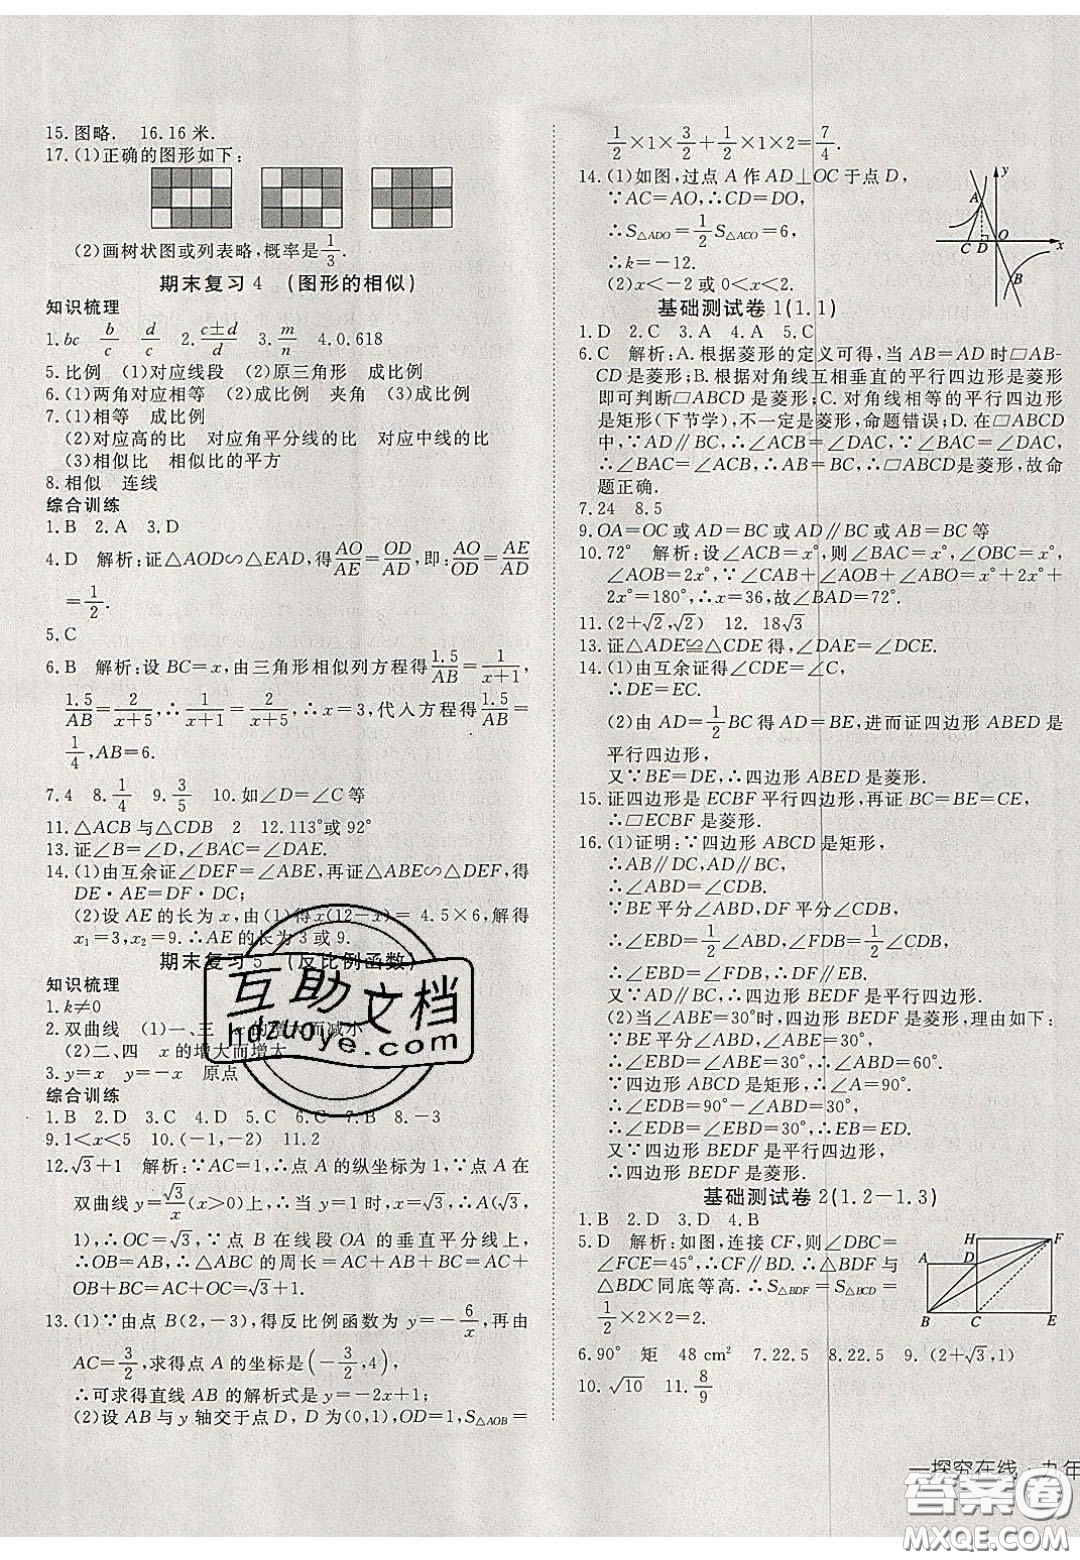 15.图略.  16.16 米.
17.(1)正确的图形如下:
(2)画树状图或列表略,概率是1/3.
期末复习 4 (图形的相似)
知识梳理
1.bc  b/c  d/c  2.(c±d)/d  3.m/n  4.0.618
5.比例  (1)对应线段  (2)原三角形  成比例
6.(1)两角对应相等  (2)成比例  夹角  (3)成比例
7.(1)相等  成比例
(2)对应高的比  对应角平分线的比  对应中线的比
(3)相似比  相似比的平方
8.相似  连线
综合训练
1.B  2.A  3.D
4.D  解析:证△AOD∽△EAD,得AO/AE=OD/AD,即:AO/OD=AE/AD
=1/2.
5.C
6.B  解析:设 BC=x,由三角形相似列方程得1.5/AB=1/(x+1),
1.5/AB=2/(x+5),∴1/(x+1)=2/(x+5),∴x=3,代入方程得1.5/AB=
1/4,AB=6.
7.4  8.1/4  9.3/5  10.如∠D=∠C 等
11.△ACB 与△CDB  2  12.113°或 92°
13.证∠B=∠D,∠BAC=∠DAE.
14.(1)由互余证∠DEF=∠ABE,再证△ABE∽△DEF,得
DE·AE=DF·DC;
(2)设 AE 的长为 x,由(1)得 x(12-x)=4.5×6,解得
x₁=3,x₂=9.∴AE 的长为 3 或 9.
期末复习 5 (反比例函数)
知识梳理
1.k≠0
2.双曲线  (1)一、三  x 的增大而减小
(2)二、四  x 的增大而增大
3.y=x  y=-x  原点
综合训练
1.B  2.D  3.C  4.D  5.C  6.C  7.B  8.-3
9.1<x<5  10.(-1,-2)  11.2
12.√3+1  解析:∵AC=1,∴点 A 的纵坐标为 1,∵点 A 在
双曲线 y=√3/x(x>0)上,∴当 y=1 时,x=√3,∴A(√3,
1),∴OC=√3,∵点 B 在线段 OA 的垂直平分线上,
∴OB=AB,∴△ABC 的周长=AB+BC+AC=
OB+BC+AC=OC+AC=√3+1.
13.(1)∵由点 B(2,-3),得反比例函数为 y=-6/x,再由
AC=3/2,求得点 A 的坐标是(-3/2,4),
∴可求得直线 AB 的解析式是 y=-2x+1;
(2)设 AB 与 y 轴交于点 D,D 为(0,1),OD=1,S△AOB=
1/2×1×3/2+1/2×1×2=7/4.
14.(1)如图,过点 A 作 AD⊥OC 于点 D,
∵AC=AO,∴CD=DO,
∴S△ADO=1/2S△ACO=6,
∴k=-12.
(2)x<-2 或 0<x<2.
A
y
C D O x
B
基础测试卷 1(1.1)
1.D  2.C  3.A  4.A  5.C
6.C  解析:A.根据菱形的定义可得,当 AB=AD 时▱AB-
CD是菱形;B.根据对角线互相垂直的平行四边形是菱形
即可判断▱ABCD是菱形;C.对角线相等的平行四边形
是矩形(下节学),不一定是菱形,命题错误;D.在▱ABCD
中,∵AD∥BC,∴∠ACB=∠DAC,∵∠BAC=∠DAC,
∴∠BAC=∠ACB,∴AB=BC,∴▱ABCD是菱形,故命
题正确.
7.24  8.5
9.OA=OC 或 AD=BC 或 AD∥BC 或 AB=BC 等
10.72°  解析:设∠ACB=x°,则∠BAC=x°,∠OBC=x°,
∠AOB=2x°,∵∠CAB+∠AOB+∠ABO=x°+2x°+
2x°=180°,∴x=36,故∠BAD=72°.
11.(2+√2,√2)  12. 18√3
13.证△ADE≌△CDE 得,∠DAE=∠DCE.
14.(1)由互余证得∠CDE=∠C,
∴DE=EC.
(2)由 AD=1/2BC 得 AD=BE,进而证四边形 ABED 是
平行四边形,
又∵BE=DE,∴四边形 ABED 是菱形.
15.证四边形是 ECBF 平行四边形,再证 BC=BE=CE,
∴▱ECBF 是菱形.
16.(1)证明:∵四边形 ABCD 是矩形,
∴AB∥DC,AD∥BC,
∴∠ABD=∠CDB.
∵BE 平分∠ABD,DF 平分∠CDB,
∴∠EBD=1/2∠ABD,∠FDB=1/2∠CDB,
∴∠EBD=∠FDB,∴BE∥DF.
又∵AD∥BC,∴四边形 BEDF 是平行四边形.
(2)当∠ABE=30°时,四边形 BEDF 是菱形,理由如下:
∵BE 平分∠ABD,∠ABE=30°,
∴∠EBD=∠ABE=30°,∴∠ABD=60°.
∵四边形 ABCD 是矩形,∴∠A=90°.
∴∠EDB=90°-∠ABD=30°,
∴∠EDB=∠EBD=30°,∴EB=ED.
又∵四边形 BEDF 是平行四边形,
∴四边形 BEDF 是菱形.
基础测试卷 2(1.2-1.3)
1.B  2.D  3.D  4.B
5.D  解析:如图,连接 CF,则∠DBC=
∠FCE=45°,∴CF∥BD.∴△BDF 与
△BDC 同底等高.∴S△BDF=S△BCD=
1/2×2×2=2.
H F
A D
B C E
6.90°  矩  48 cm²  7.22.5  8.22.5  9.(2+√3,1)
10.√10  11.8/9
一探究在线·九年
互助文档
hdzuoye.com
答案圈
MXQE.COM